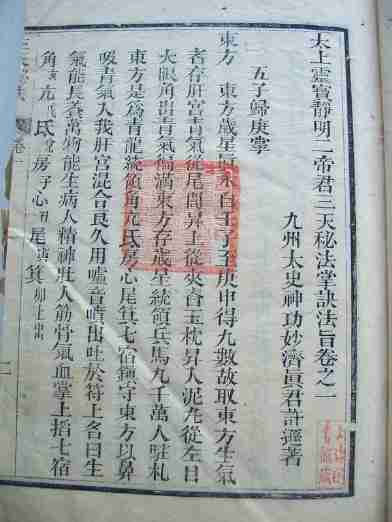 太上靈寶靜明二帝君三天秘法掌訣法旨卷之一
九州太史神功妙濟真君許遜著
五子歸庚掌
東方 東方歲星真氣自壬子至庚申得九數故取東方生氣
者存肝宮青氣從尾閭昇上從夾脊玉枕昇入泥丸從左目
大眼角出青氣徧滿東方存歲星統領兵馬九千萬人駐札
東方是為青龍統領角亢氐房心尾箕七宿鎮守東方以鼻
吸青氣入我肝宮混合良久用噓音嘻出吐於符上名曰生
氣能長養萬物能生病人精神壯人筋骨氣血掌上指七宿
角 亢 氐 房 心 尾 箕
卷一